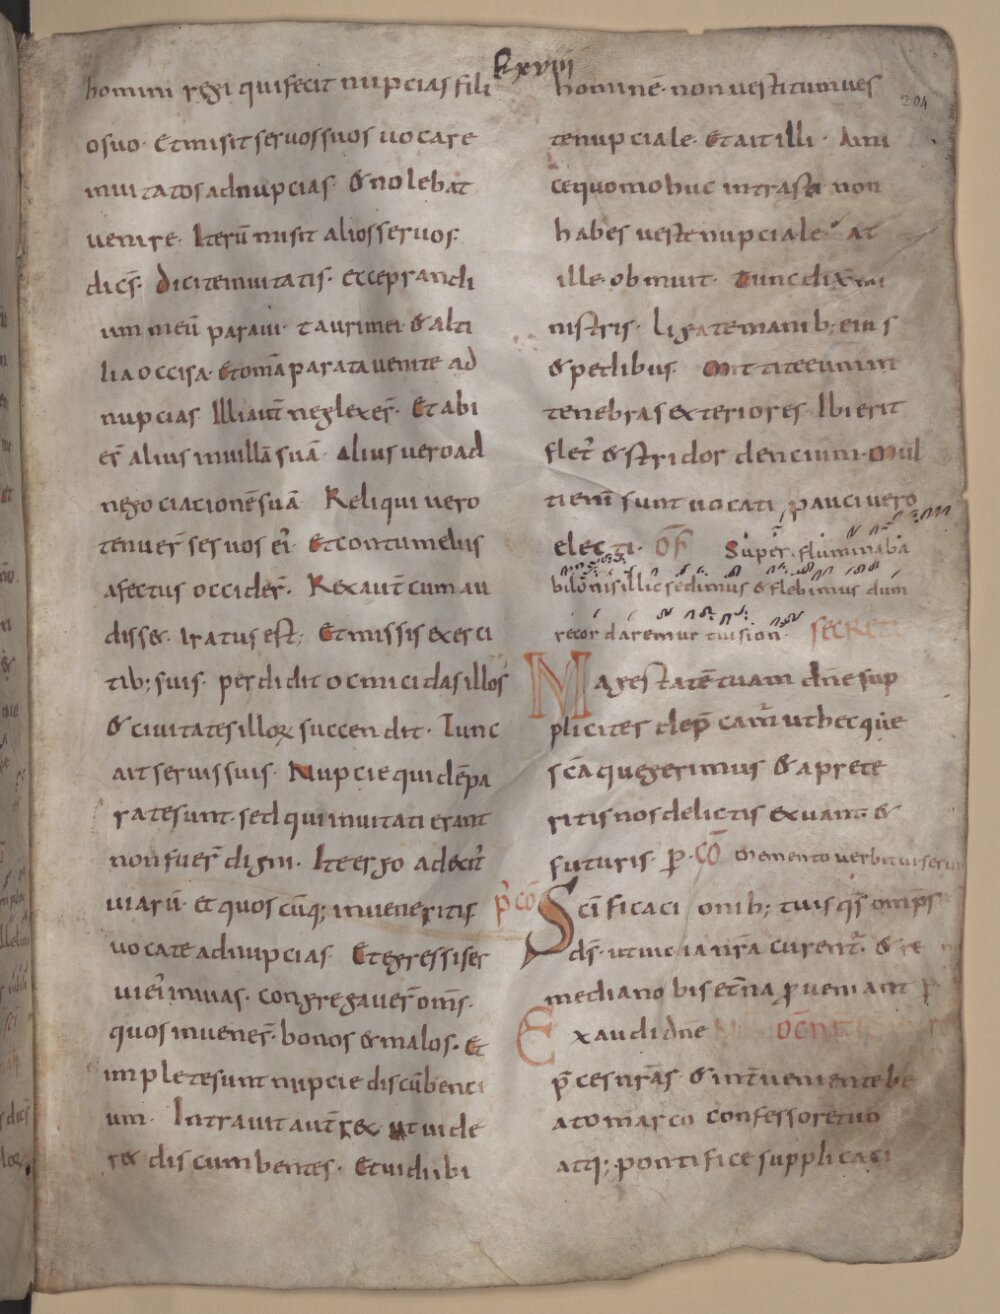 lxxviii
204
homini regi qui fecit nupcias fili
o suo· Et misit servos suos vocare
invitatos ad nupcias· & nolebat
venire· Iterū misit alios servos·
dicēs· Dicite invitatis· ecce prandi
um meū paravi· tauri mei· & alti
lia occisa· Et omīa parata venite ad
nupcias· Illi aut̄ neglexer̄· Et abi
er̄ alius in villā suā· alius vero ad
negociacionē suā Reliqui vero
tenuer̄ servos ei᷒· Et contumeliis
afectus occider̄· Rex aut̄ cum au
disset· iratus est; Et missis exerci
tib; suis· perdidit omicidas illos
& civitates illoꝝ succendit· Tunc
ait servis suis· Nupcie quidē pa
rate sunt· sed qui invitati erant
non fuer̄ digni· Ite ergo ad exit᷒
viarū· et quoscūq; inveneritis
vocate ad nupcias Et egressi ser
vi ei᷒ in vias· congregaver̄ om̄s·
quos invener̄· bonos & malos· Et
implete sunt nupcie discūbenci
um· Intravit aut̄ rex ut vide
ret discumbentes· Et vidit ibi
hominē· non vestitum ves
te nupciale· Et ait illi· Ami
ce quomo huc intrasti non
habes veste nupciale· at
ille obmuit· Tunc dix mi
nistris· Ligate manib; eius
& pedibus· Mittite eum in
tenebras exteriores· Ibi erit
flet᷒ & stridor dencium· Mul
ti eni᷒ sunt vocati pauci vero
electi· OF Super flumina ba
bilonis illic sedimus & flebimus dum
recordaremur tui sion· SECRETA
Magestatē tuam dn̄e sup
plicites dep̄camur ut hec que
sc̄a que gerimus & a prete
ritis nos delictis exuant· &
futuris· P· CŌ Memento verbi tui servo
P̄ CŌ Sc̄ificacionib; tuis qs̄ omp̄s
ds̄· ut vicia nr̄a curent᷒· & re
media nobis et̄na ꝓveniant P
Exaudi dn̄e
p̄ces nr̄as & int̄veniente be
ato marco confessore tuo
atq; pontifice supplicaci